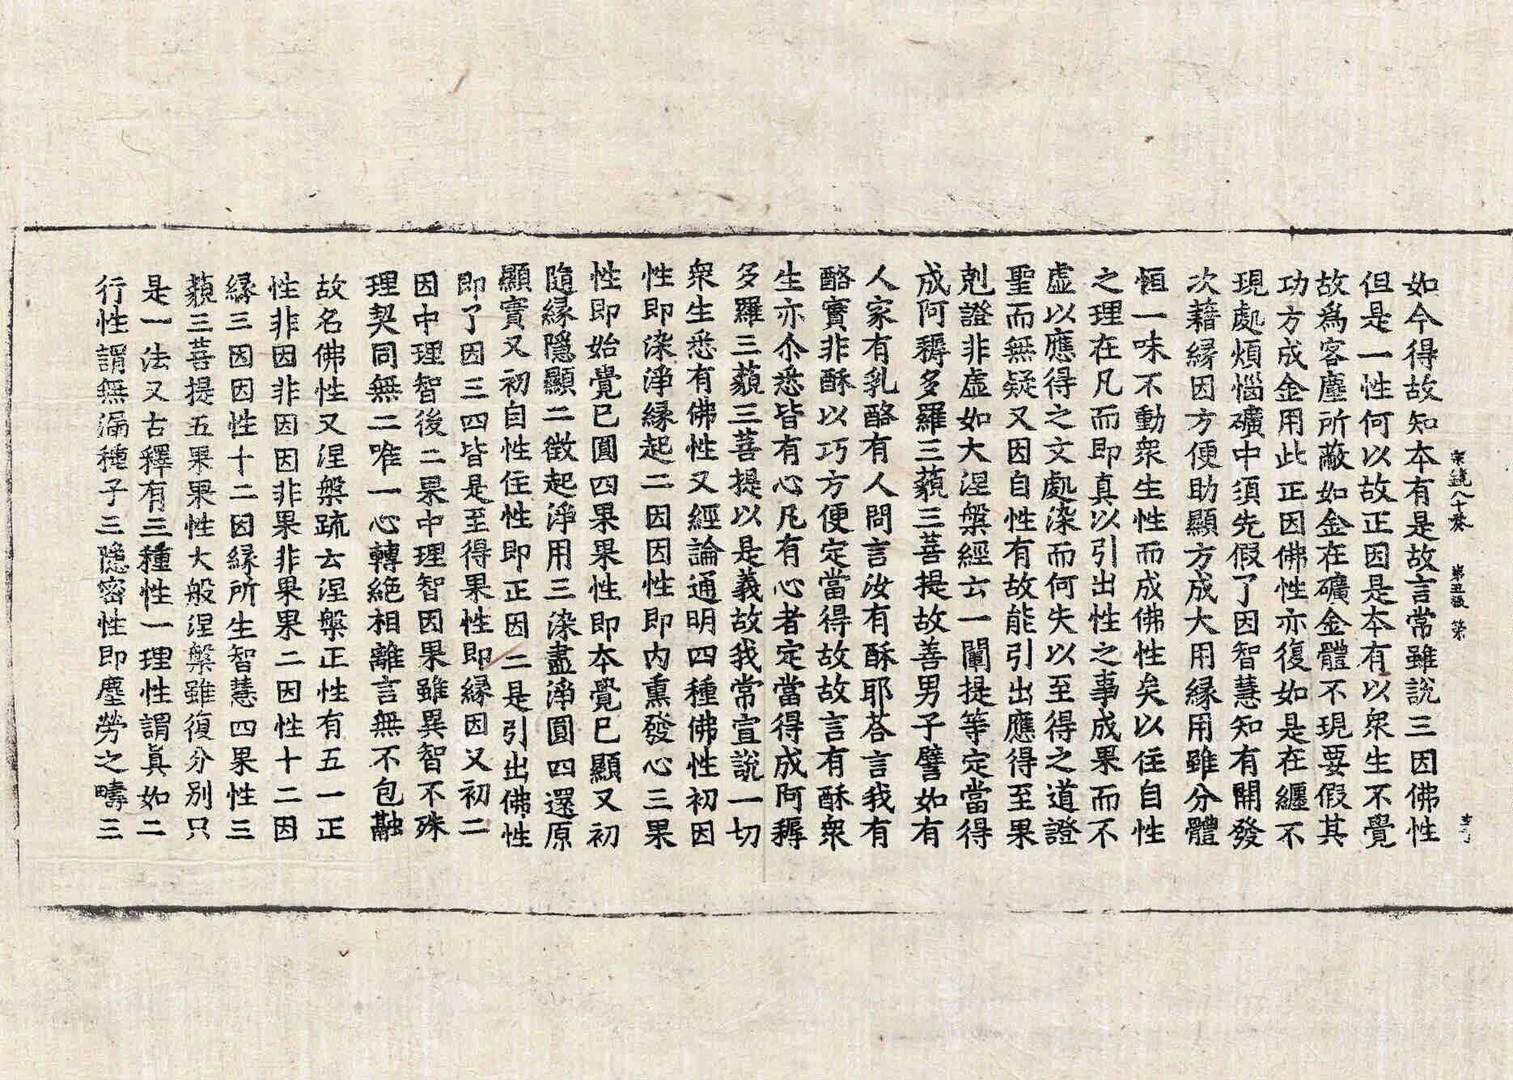 如今得故知本有是故言常雖說三因佛性
但是一性何以故正因是本有以衆生不覺
故爲客塵所蔽如金在礦金體不現要假其
功方成金用此正因佛性亦復如是在纏不
現處煩惱礦中須先假了因智慧知有開發
次藉緣因方便助顯方成大用緣用雖分體
恒一味不動衆生性而成佛性矣以住自性
之理在凡而即真以引出性之事成果而不
虛以應得之文處染而何失以至得之道證
聖而無疑又因自性有故能引出應得至果
剋證非虛如大涅槃經云一闡提等定當得
成阿耨多羅三藐三菩提故善男子譬如有
人家有乳酪有人問言汝有酥耶荅言我有
酪實非酥以巧方便定當得故故言有酥衆
生亦尒悉皆有心凡有心者定當得成阿耨
多羅三藐三菩提以是義故我常宣說一切
衆生悉有佛性又經論通明四種佛性初因
性即染淨緣起二因因性即內熏發心三果
性即始覺已圓四果果性即本覺已顯又初
隨緣隱顯二微起淨用三染盡淨圓四還原
顯實又初自性住性即正因二是引出佛性
即了因三四皆是至得果性即緣因又初二
因中理智後二果中理智因果雖異智不殊
理契同無二唯一心轉絕相離言無不包融
故名佛性又涅槃疏云涅槃正性有五一正
性非因非因非果非果果二因性十二因
緣三因因性十二因緣所生智慧四果性三
藐三菩提五果果性大般涅槃雖復分別只
是一法又古釋有三種性一理性謂眞如二
行性謂無漏種子三隱密性即塵勞之疇三